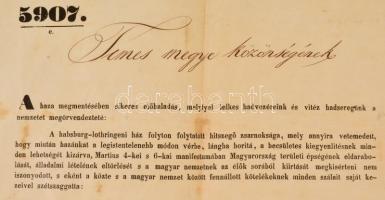 5907.
e.
Temes megye közönségének
A haza megmentésében sikeres előhaladás, mellyel lelkes hadvezéreink és vitéz hadseregünk a
nemzetet megörvendezteté:
A habsburg-lothringeni ház folyton folytatott hitszegő zsarnoksága, mely annyira vetemedett,
hogy miután hazánkat a legistentelenebb módon vérbe, lángba borítá, a becsületes kiegyenlitésnek min-
den lehetségét kizárva, Martius 4-kei s 6-kai manifestumában Magyarország területi épségének eldarabo-
lását, álladalmi lételének eltörlését s a magyar nemzetnek az élők sorából kiirtását megkisérteni nem
iszonyodott, s eként a közte s a magyar nemzet között fennállott kötelékeknek minden szálait saját ke-
zeivel szétszaggatta: